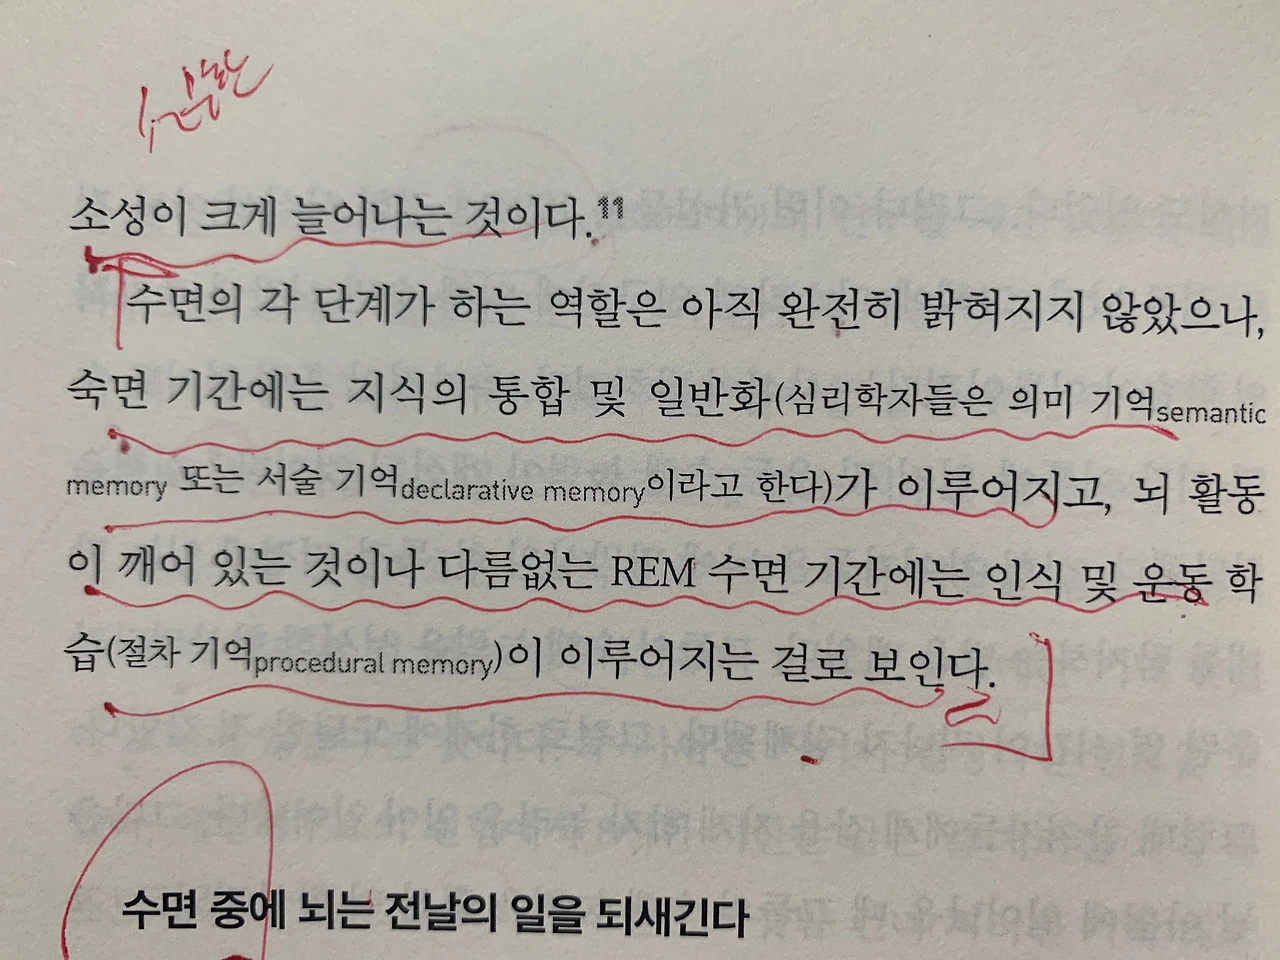 소성이 크게 늘어나는 것이다.11
수면의 각 단계가 하는 역할은 아직 완전히 밝혀지지 않았으나,
숙면 기간에는 지식의 통합 및 일반화(심리학자들은 의미 기억semantic
memory 또는 서술 기억declarative memory이라고 한다)가 이루어지고, 뇌 활동
이 깨어 있는 것이나 다름없는 REM 수면 기간에는 인식 및 운동 학
습(절차 기억procedural memory)이 이루어지는 걸로 보인다.
수면 중에 뇌는 전날의 일을 되새긴다